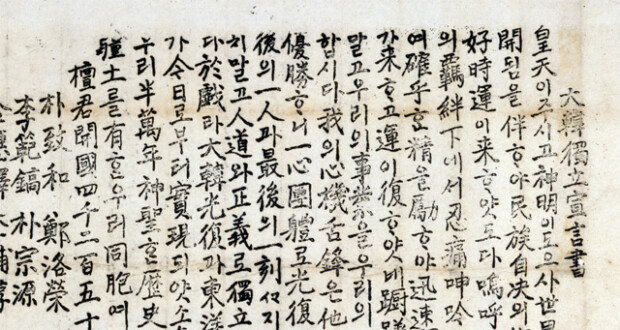 大韓獨立宣言書
皇天이주시고神明이도으사世
開됨을伴하야民族自決의
好時運이来하얏도다嗚呼
의羈絆下에서忍痛呻吟
여確乎한精을勵하야迅速
가来하고運이復하얏네躕
말고우리의事業을우리의
합시다我의心機舌鋒은他
優勝하니一心團體로光復
後의一人과最後의一刻
치말고人道와正義로獨立
다於戲라大韓光復과東洋
가今日로부터實現되얏소
우리半萬年神聖한歷史
疆土를有한우리同胞여
檀君開國四千二百五十
朴致和 鄭洛榮
李範鎬 朴宗源